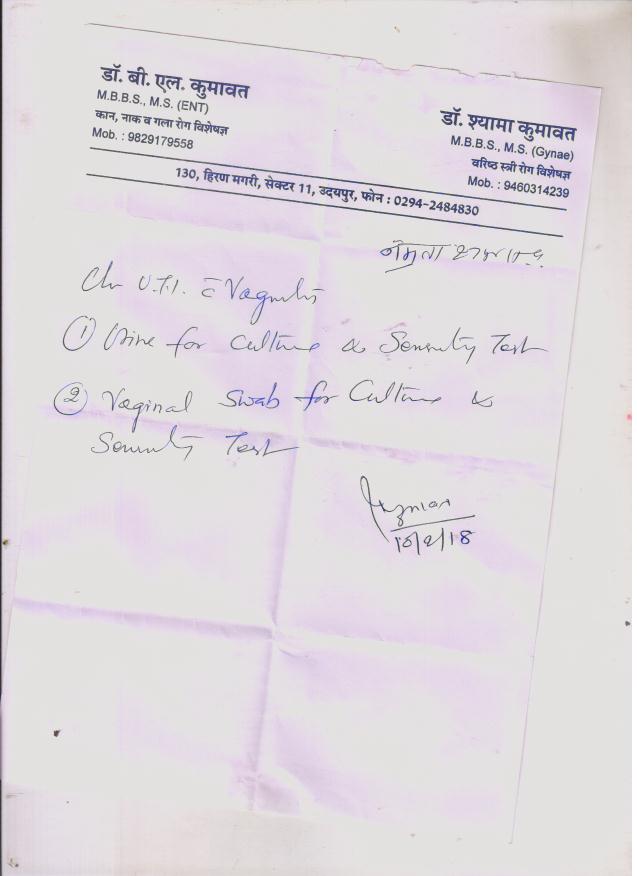 डॉ. बी. एल. कुमावत
M.B.B.S., M.S. (ENT)
कान, नाक व गला रोग विशेषज्ञ
Mob. : 9829179558
डॉ. श्यामा कुमावत
M.B.B.S., M.S. (Gynae)
वरिष्ठ स्त्री रोग विशेषज्ञ
Mob. : 9460314239
130, हिरण मगरी, सेक्टर 11, उदयपुर, फोन : 0294-2484830
U.T.I. c̄ Vaginitis
① Urine for Culture & Sensitivity Test
② Vaginal Swab for Culture &
Sensitivity Test
10/2/18